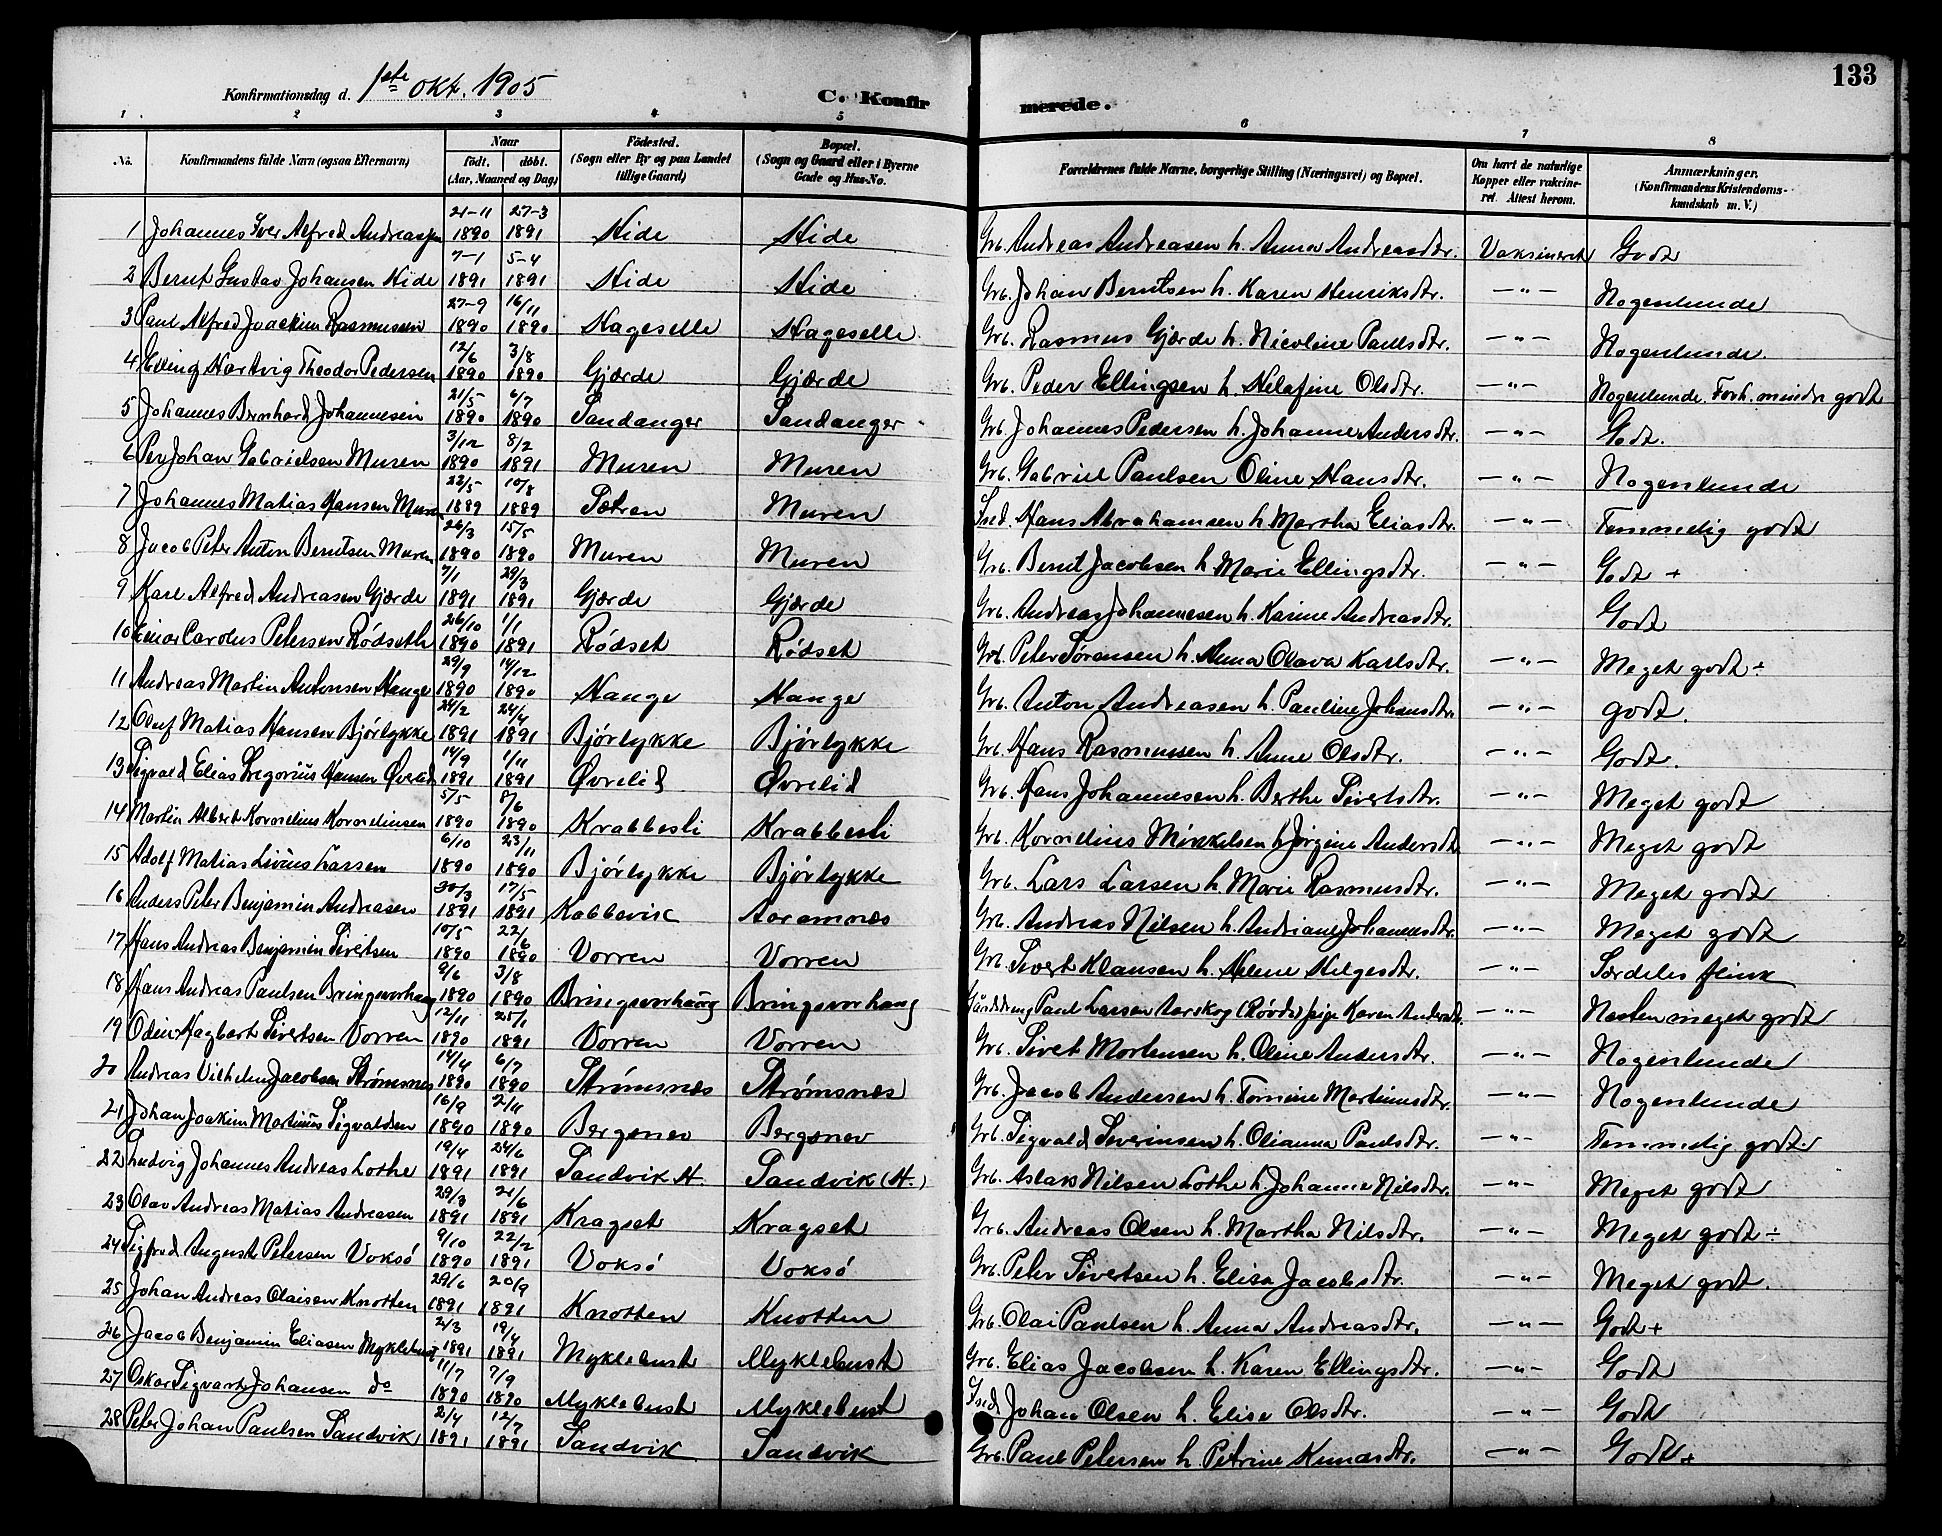 133
Konfirmationsdag d. 1ste okt. 1905
C. Konfirmerede.
1 2 3 4 5 6 7 8
No. Konfirmandens fulde Navn (ogsaa Efternavn) Naar født. døbt. (Aar, Maaned og Dag) Fødested. (Sogn eller By og paa Landet tillige Gaard) Bopæl. (Sogn og Gaard eller i Byerne Gade og Hus-No. Forældrenes fulde Navne, borgerlige Stilling (Næringsvei) og Bopæl. Om havt de naturlige Kopper eller vakcineret. Attest herom. Anmærkninger. (Konfirmandens Kristendomskundskab m. V.)
1 Johannes Iver Alfred Andreassen 21-11 1890 27-3 1891 Hide Hide Grb. Andreas Andreasen h. Anna Andreasdtr. Vaksineret Godt
2 Bernt Gustav Johansen Hide 7-1 1891 5-4 1891 Hide Hide Grb. Johan Berntsen h. Karen Henriksdtr. —"— Nogenlunde
3 Paul Alfred Joackim Rasmussen 27-9 1890 16/11 1890 Hageselle Hageselle Grb. Rasmus Gjærde h. Nicoline Paulsdtr. —"— Nogenlunde.
4 Elling Hartvig Theodor Pedersen 12/6 1890 3/8 1890 Gjærde Gjærde Grb. Peder Ellingsen h. Olsdtr. —"— Nogenlunde. Forh. mindre godt
5 Johannes Bernhard Johannesen 21/5 1890 6/7 1890 Sandanger Sandanger Grb. Johannes Pedersen h. Johanne Andersdtr. —"— Godt.
6 Per Johan Gabrielsen Muren 3/12 1890 8/2 1891 Muren Muren Grb. Gabriel Paulsen Oline Hansdtr. —"— Nogenlunde
7 Johannes Matias Hansen Muren 22/5 1889 10/8 1889 Sætren Muren Ind. Hans Abrahamsen h. Martha Eliasdtr. —"— Temmelig godt
8 Jacob Peter Anton Berntsen Muren 26/3 1890 15/5 1890 Muren Muren Grb. Bernt Jacobsen h. Marie Ellingsdtr. —"— Godt +
9 Karl Alfred Andreasen Gjærde 7/1 1891 29/3 1891 Gjærde Gjærde Grb. Andreas Johannesen h. Karine Andreasdtr. —"— Godt
10 Einar Carolus Petersen Rødseth 26/10 1890 1/1 1891 Rødset Rødset Grb. Peter Sørensen h. Anna Olava Karlsdtr. —"— Meget godt ÷
11 Andreas Martin Antonsen Hauge 29/9 1890 14/12 1890 Hauge Hauge Grb. Anton Andreasen h. Pauline Johansdtr. —"— godt.
12 Oluf Matias Hansen Bjørlykke 24/2 1891 24/4 1891 Bjørlykke Bjørlykke Grb. Hans Rasmussen h. Anne Olsdtr. —"— Godt.
13 Sigvald Elias Gregorius Hansen Øvrelid 14/9 1891 1/11 1891 Øvrelid Øvrelid Grb. Hans Johannesen h. Berthe Sivertsdtr. —"— Meget godt
14 Martin Albert Kornelius Korneliusen 5/5 1890 8/6 1890 Krabbesli Krabbesli Grb. Kornelius Mikkelsen h. Jørgine Andersdtr. —"— Meget godt
15 Adolf Matias Livius Larsen 6/10 1890 23/11 1890 Bjørlykke Bjørlykke Grb. Lars Larsen h. Marie Rasmusdtr. —"— Meget godt
16 Anders Peter Benjamin Andreasen 30/3 1891 17/5 1891 Kobbevik Aaramnæs Grb. Andreas Nilsen h. Andriane Johannesdtr. —"— Meget godt
17 Hans Andreas Benjamin Sivertsen 10/5 1890 22/6 1890 Vorren Vorren Grb. Sivert Klausen h. Helene Helgesdtr. —"— Særdeles flink
18 Hans Andreas Paulsen Bringsvorhaug 9/6 1890 3/8 1890 Bringsvorhaug Bringsvorhaug Gårddreng Paul Larsen Aarskog (Røvde) pige Karen Andersdtr. —"— Næsten meget godt
19 Odin Hagbart Sivertsen Vorren 12/11 1890 25/1 1891 Vorren Vorren Grb. Sivert Mortensen h. Oline Andersdtr. —"— Nogenlunde
20 Andreas Vilhelm Jacobsen Strømsnes 14/4 1890 6/7 1890 Strømsnæs Strømsnæs Grb. Jacob Andersen h. Tomine Martinusdtr. —"— Nogenlunde
21 Johan Joakim Martinus Sigvaldsen 16/9 1890 2/11 1890 Bergsnev Bergsnev Grb. Sigvald Severinsen h. Olianna Paulsdtr. —"— Temmelig godt.
22 Ludvig Johannes Andreas Lothe 19/4 1891 24/6 1891 Sandvik H. Sandvik (H.) Grb. Aslak Nilsen Lothe h. Johanne Nilsdtr. —"— Meget godt
23 Olav Andreas Matias Andreasen 29/3 1891 21/6 1891 Kragset Kragset Grb. Andreas Olsen h. Martha Nilsdtr. —"— Meget godt ÷
24 Sigfred August Petersen Voksø 9/10 1890 22/2 1891 Voksø Voksø Grb. Peter Sivertsen h. Elisa Jacobsdtr. —"— Meget godt.
25 Johan Andreas Olaisen Knotten 29/6 1891 20/9 1891 Knotten Knotten Grb. Olai Paulsen h. Anna Andreasdtr. —"— Godt +
26 Jacob Benjamin Eliasen Myklebust 2/3 1891 19/4 1891 Myklebust Myklebust Grb. Elias Jacobsen h. Karen Ellingsdtr. —"— Godt
27 Oskar Sigvart Johansen do 11/7 1890 7/9 1890 Myklebust Myklebust Ind. Johan Olsen h. Elise Olsdtr. —"— Godt
28 Peter Johan Paulsen Sandvik 2/4 1891 12/7 1891 Sandvik Sandvik Grb. Paul Petersen h. Petrine Knudsdtr. —"— Godt +